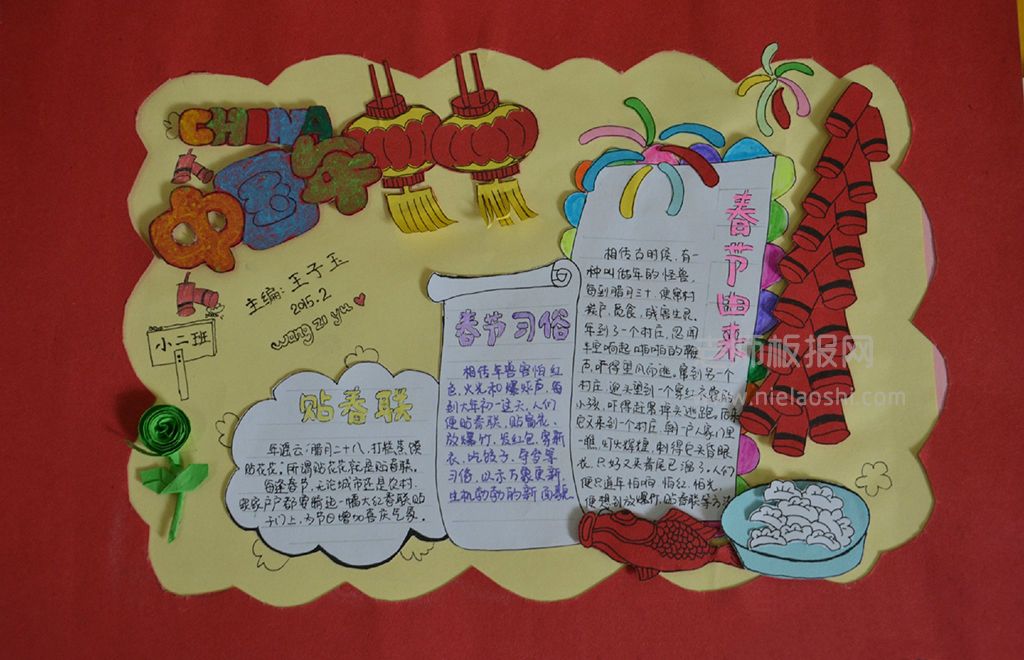 CHINA
中国年
主编:王子玉
2015.2
wang zi yu
小二班
贴春联
年谣云:腊月二十八,打糕蒸馍
贴花花,所谓贴花花就是贴春联,
每逢春节,无论城市还是农村,
家家户户都要输选一幅大红春联贴
于门上,为节日增加喜庆气氛。
春节习俗
相传年兽害怕红
色、火光和爆炸声,每
到大年初一这天,人们
便贴春联、贴窗花、
放爆竹、发红包、穿新
衣、吃饺子、守岁等
习俗,以示万象更新,
生机勃勃的新面貌
春节由来
相传古时候,有一
种叫做年的怪兽,
每到腊月三十,便窜村
挨户,觅食,残害生灵,
年到了一个村庄,忽闻
半里响起啪啪的鞭
声,吓得望风而逃,窜到另一个
村庄,迎头望到一个穿红衣裳的
小孩,吓得赶紧掉头逃跑。后来
它又来到一个村庄,朝一户人家门里
一瞧,灯火辉煌,刺得它头昏眼
花,只好又夹着尾巴溜了,人们
便知道年怕响、怕红、怕光,
便想到放爆竹、贴春联等方法
老师板报网
www.nielaoshi.com